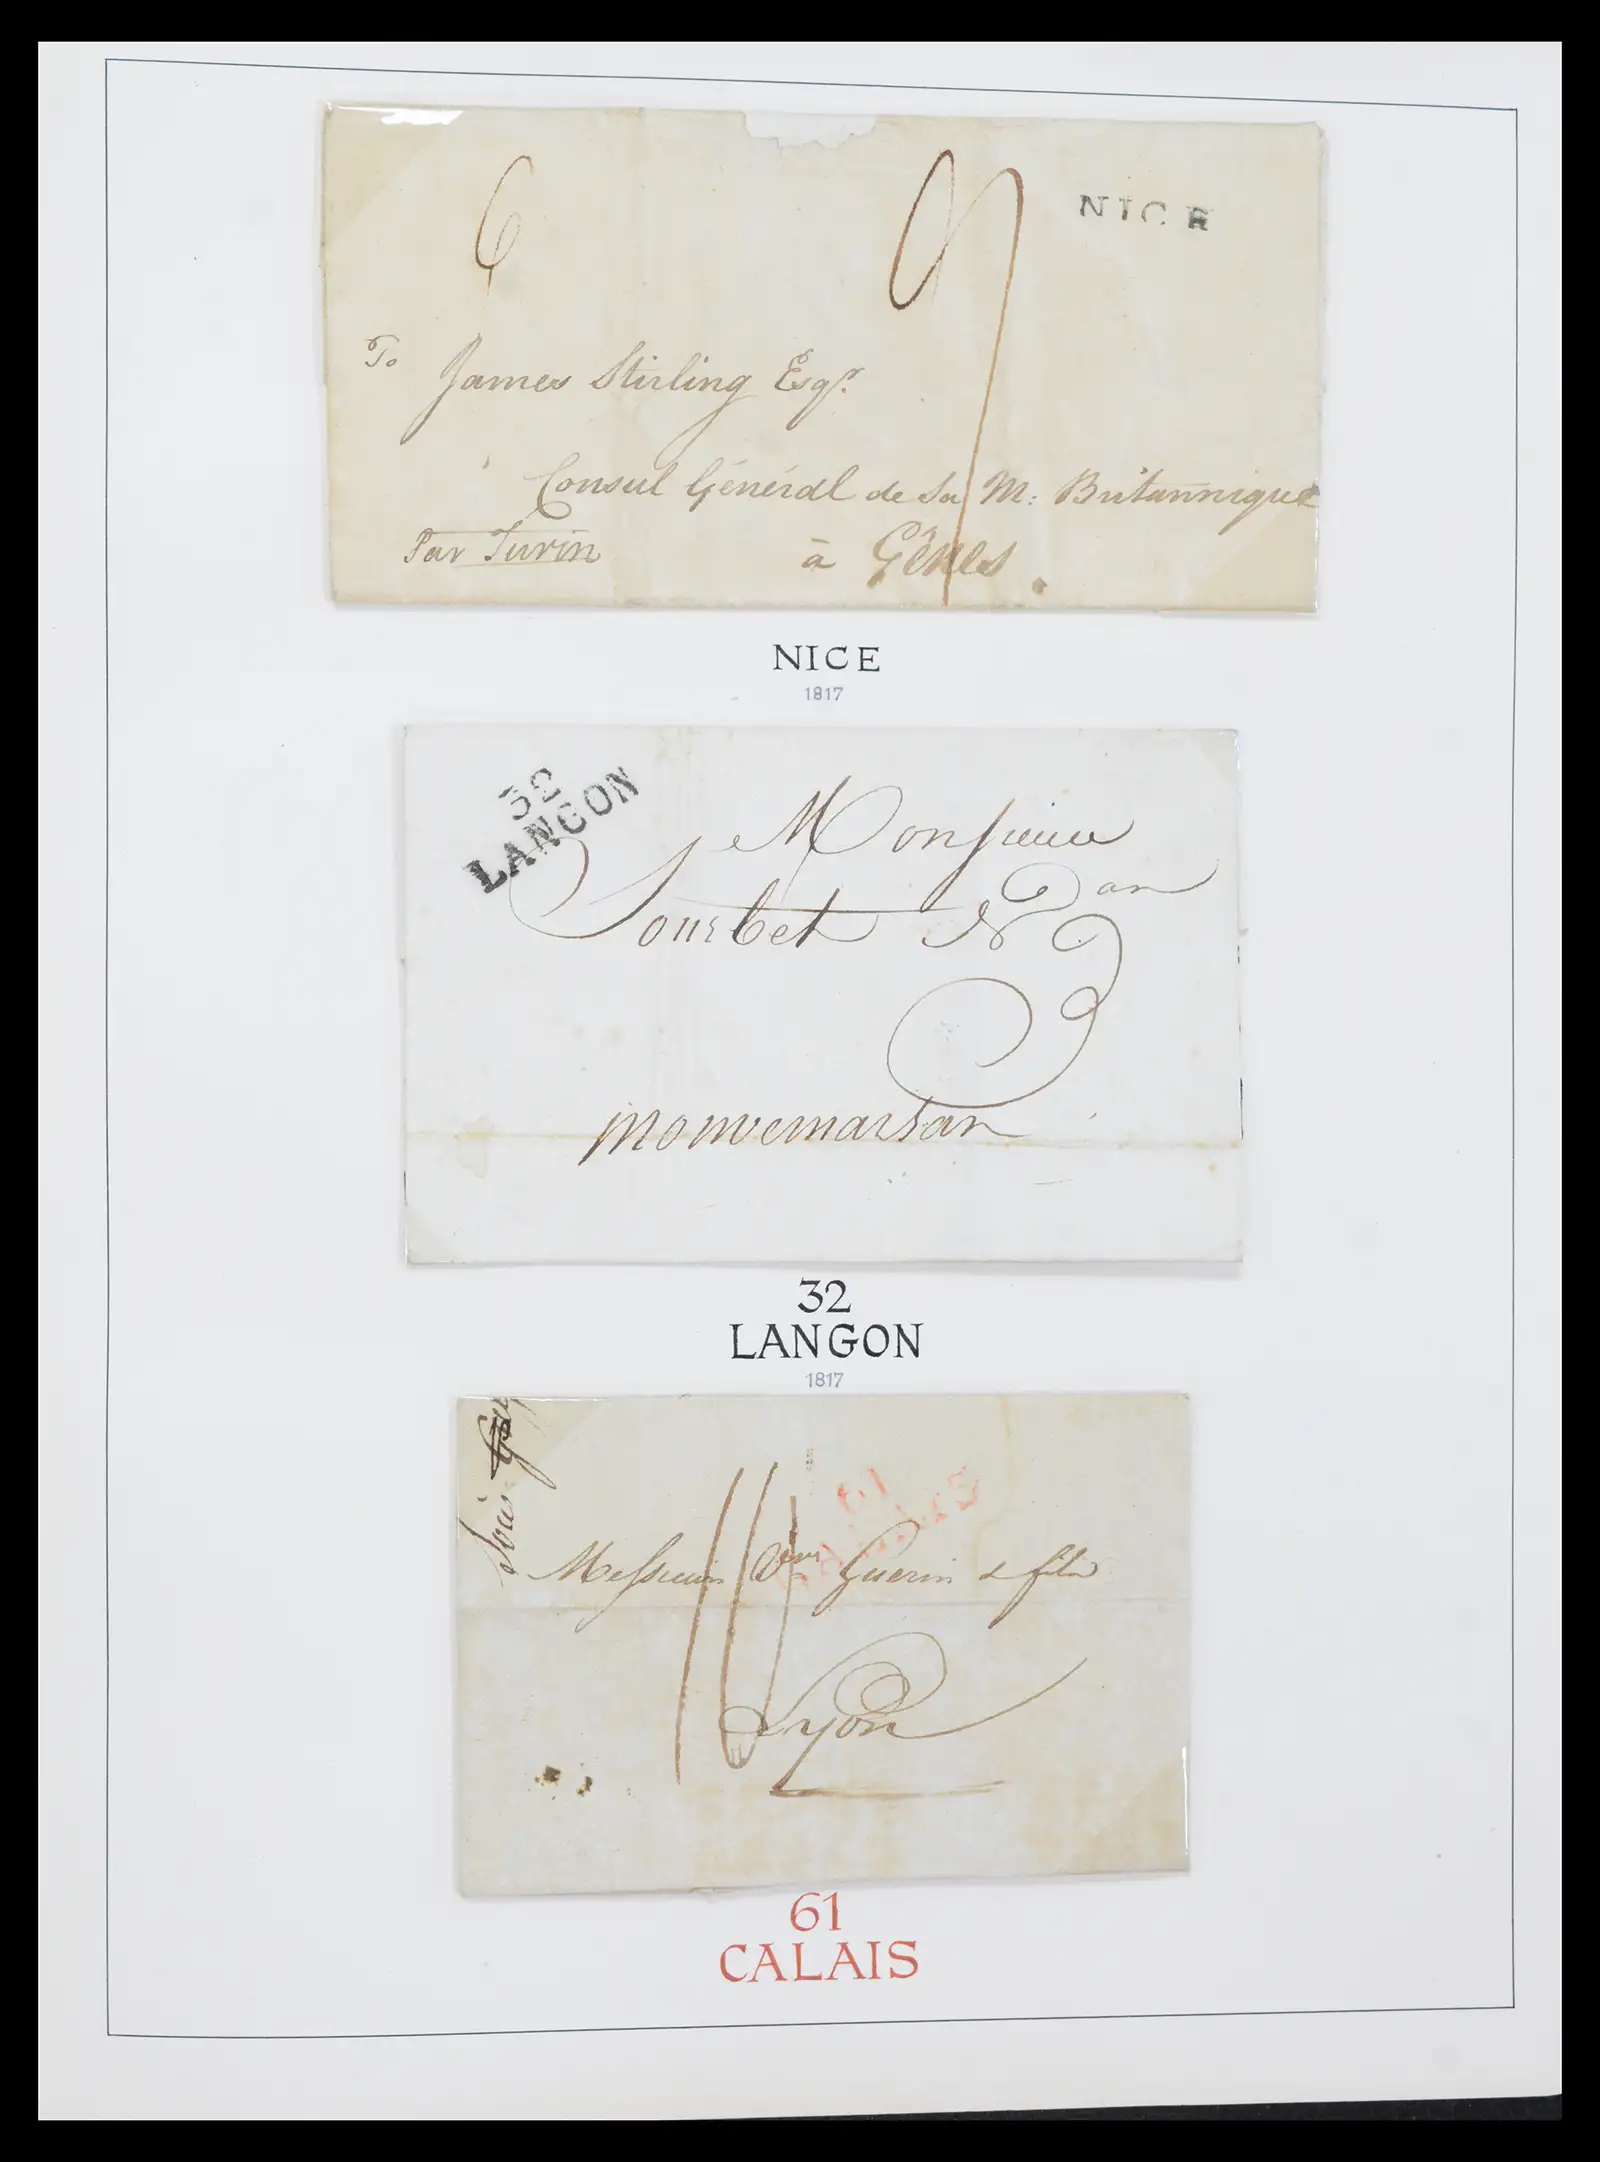 6
NICE
To
James Stirling Esqr.
Consul Général de Sa M: Britannique
Par Turin
à Gênes.
NICE
1817
32
LANGON
Monsieur
Dan
Sourbet
3
32
LANGON
1817
61
CALAIS
Messieurs Guerin & fils
Lyon
61
CALAIS